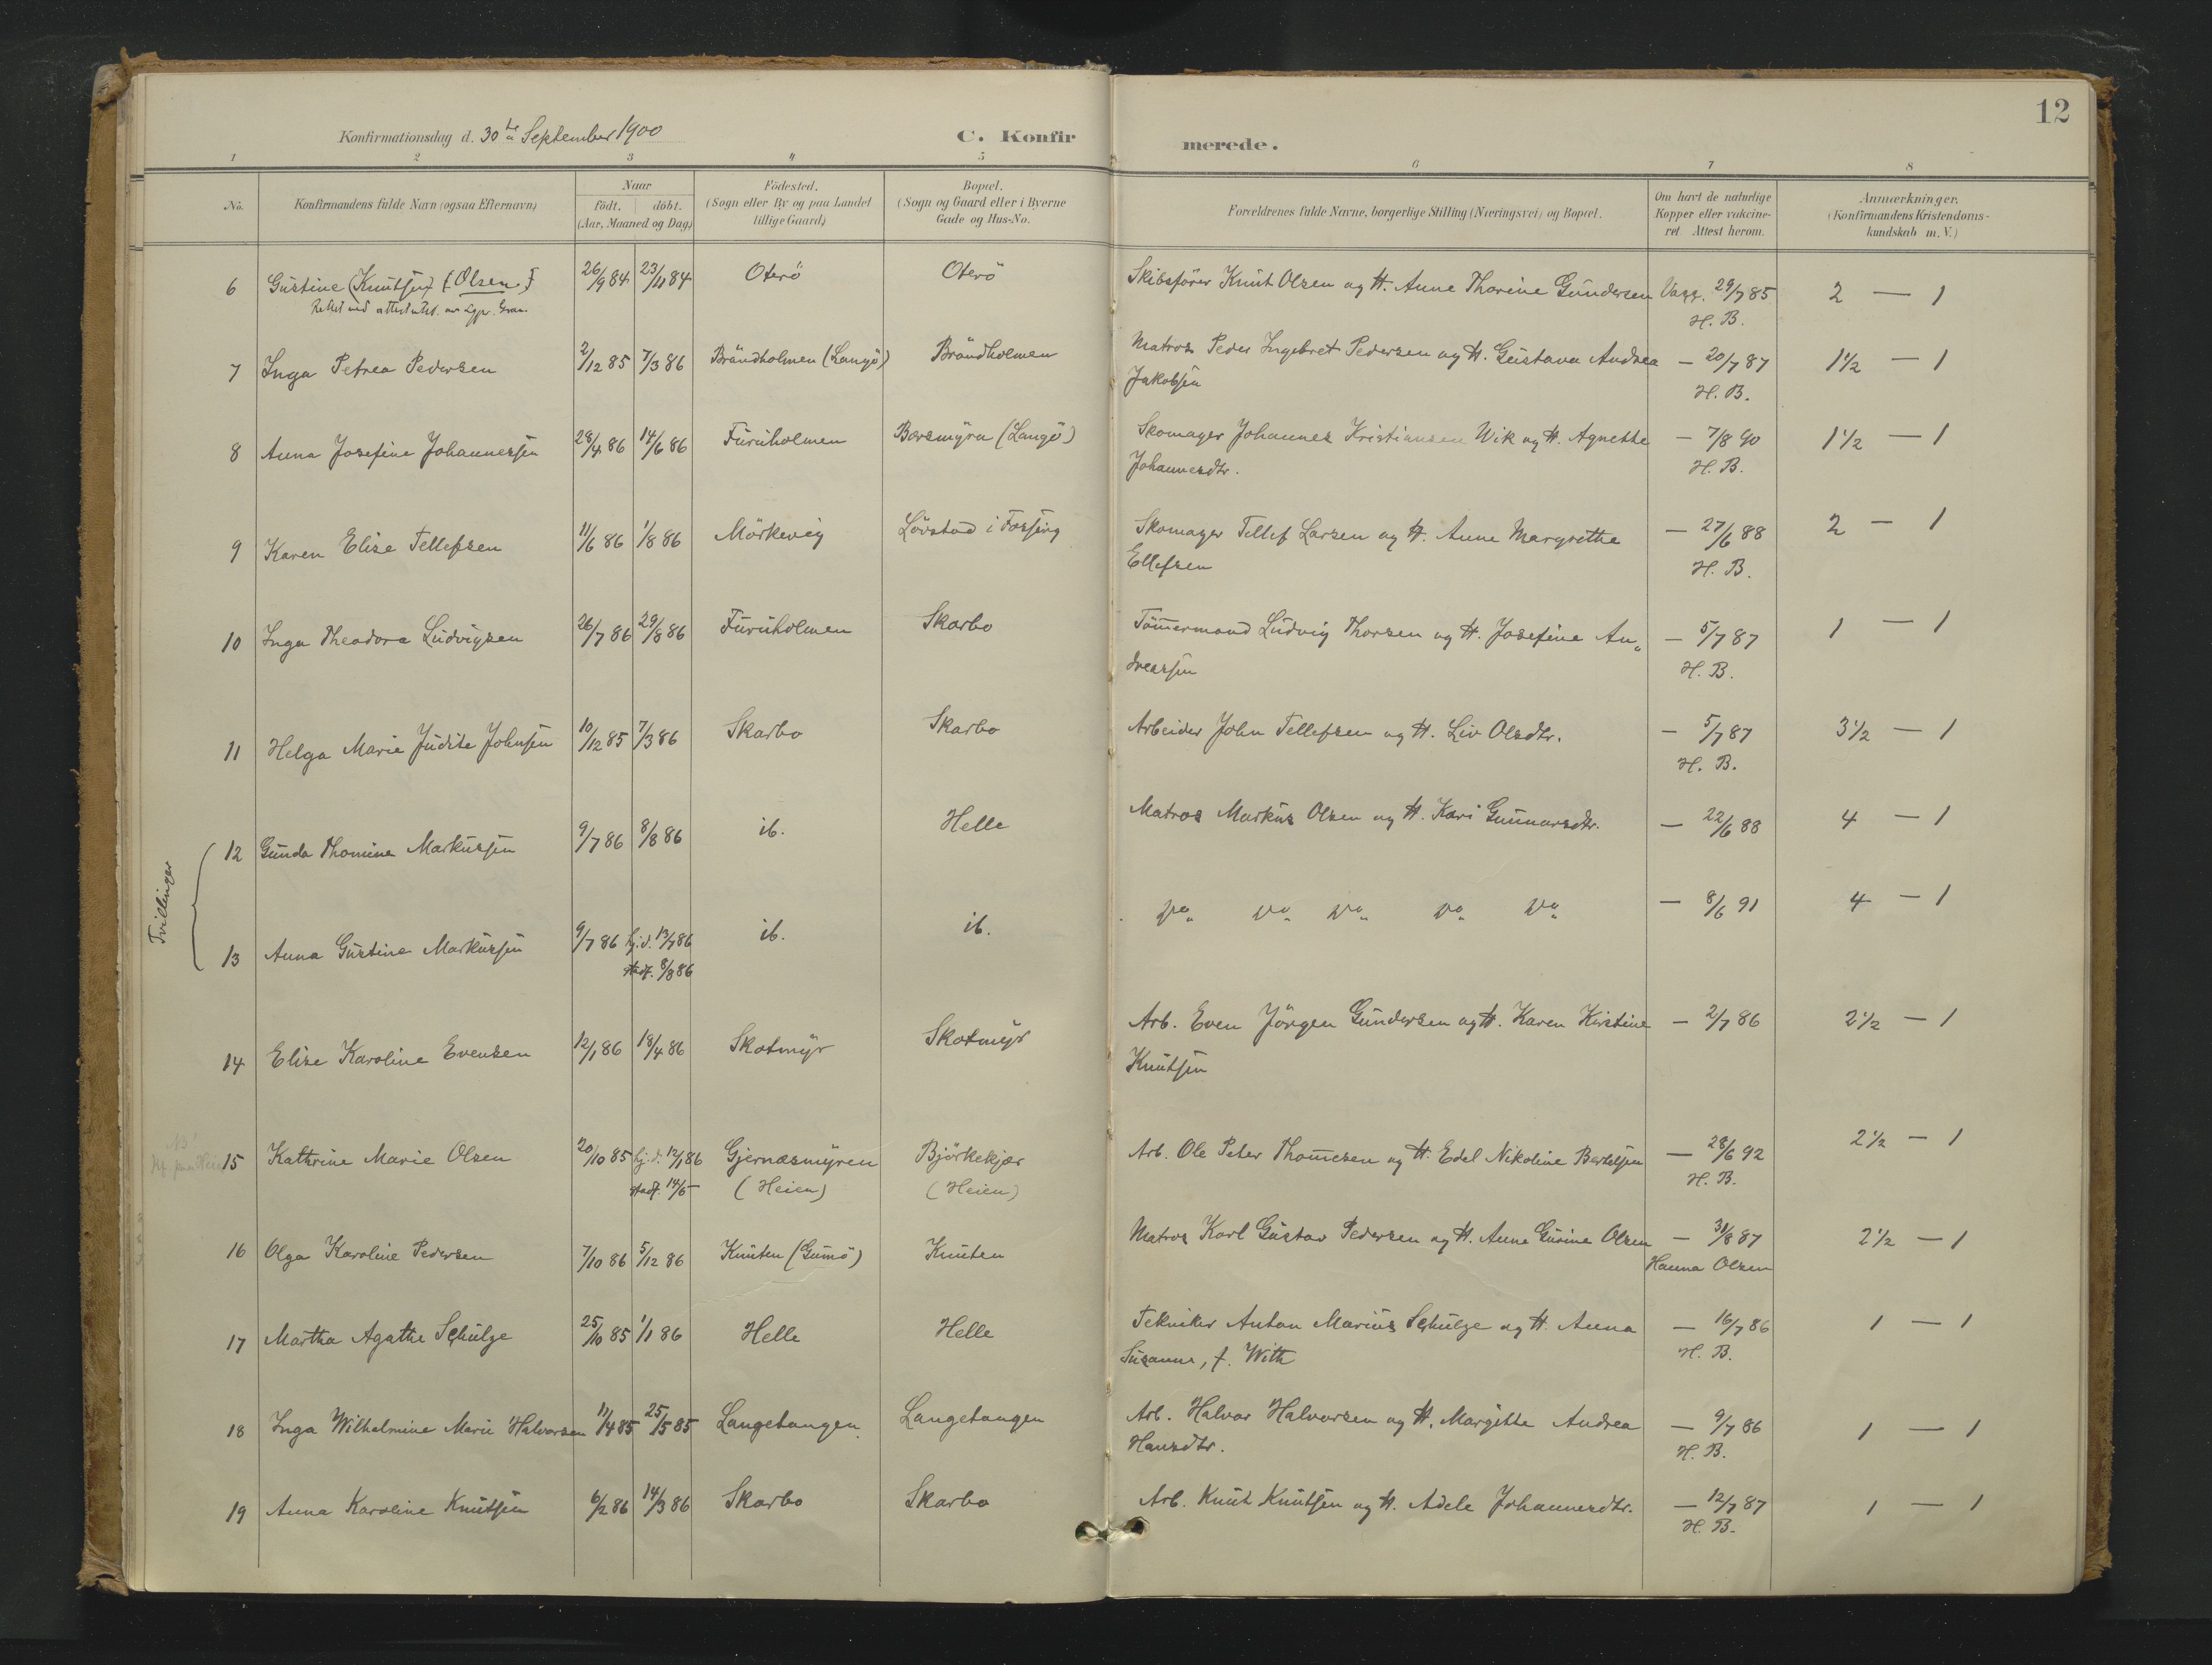 12
Konfirmationsdag d. 30te September 1900
C. Konfirmerede.
1 2 3 4 5 6 7 8
No. Konfirmandens fulde Navn (ogsaa Efternavn) Naar födt. döbt. (Aar, Maaned og Dag) Födested. (Sogn eller By og paa Landet tillige Gaard) Bopæl. (Sogn og Gaard eller i Byerne Gade og Hus-No. Forældrenes fulde Navne, borgerlige Stilling (Næringsvei) og Bopæl. Om havt de naturlige Kopper eller vakcineret. Attest herom. Anmærkninger. (Konfirmandens Kristendomskundskab m. V.)
6 Gustine (Knutsen) [Olsen.] 26/9 84 23/11 84 Oterö Oterö Skibsförer Knut Olsen og H. Anne Thorine Gundersen Vacc. 29/7 85 2 — 1
Rettet ved attest
H. B.
7 Inga Petrea Pedersen 2/12 85 7/3 86 Brändholmen (Langö) Brändholmen Matros Peder Ingebret Pedersen og H. Gustava Andrea — 20/7 87 1 1/2 — 1
Jakobsen H. B.
8 Anna Josefine Johannessen 28/4 86 14/6 86 Furuholmen Barsmyra (Langö) Skomager Johannes Kristiansen Wik og H. Agnethe — 7/8 90 1 1/2 — 1
Johannesdtr. H. B.
9 Karen Elise Tellefsen 11/6 86 1/8 86 Mörkevig Lövstad i Fossing Skomager Tellef Larsen og H. Anne Margrethe — 27/6 88 2 — 1
Ellefsen H. B.
10 Inga Theodora Ludvigsen 26/7 86 29/8 86 Furuholmen Skarbo Tömmermand Ludvig Thorsen og H. Josefine An- — 5/7 87 1 — 1
dreassen H. B.
11 Helga Marie Judite Johnsen 10/12 85 7/3 86 Skarbo Skarbo Arbeider John Tellefsen og H. Liv Olsdtr. — 5/7 87 3 1/2 — 1
H. B.
Tvillinger
12 Gunda Thomine Markussen 9/7 86 8/8 86 ib. Helle Matros Markus Olsen og H. Kari Gunnarsdtr. — 22/6 88 4 — 1
13 Anna Gustine Markussen 9/7 86 hj.d. 13/7 86 ib. ib. Do Do Do Do Do — 8/6 91 4 — 1
stadf. 8/8 86
14 Elise Karoline Evensen 12/1 86 18/4 86 Skotmyr Skotmyr Arb. Even Jörgen Gundersen og H. Karen Kirstine — 2/7 86 2 1/2 — 1
Knutsen
15 Kathrine Marie Olsen 20/10 85 hj.d. 12/1 86 Gjernæsmyren Björkekjær Arb. Ole Peter Thommesen og H. Edel Nikoline Bertelsen — 28/6 92 2 1/2 — 1
stadf. 14/5 — (Heien) (Heien) H. B.
16 Olga Karoline Pedersen 7/10 86 5/12 86 Knuten (Gumö) Knuten Matros Karl Gustav Pedersen og H. Anne Gurine Olsen — 31/8 87 2 1/2 — 1
Hanna Olsen
17 Martha Agathe Schulze 25/10 85 1/1 86 Helle Helle Tekniker Anton Marius Schulze og H. Anna — 16/7 86 1 — 1
Susanne, f. With H. B.
18 Inga Wilhelmine Marie Halvorsen 11/4 85 25/5 85 Langetangen Langetangen Arb. Halvor Halvorsen og H. Margithe Andrea — 9/7 86 1 — 1
Hansdtr. H. B.
19 Anna Karoline Knutsen 6/2 86 14/3 86 Skarbo Skarbo Arb. Knut Knutsen og H. Adele Johannesdtr. — 12/7 87 1 — 1
H. B.